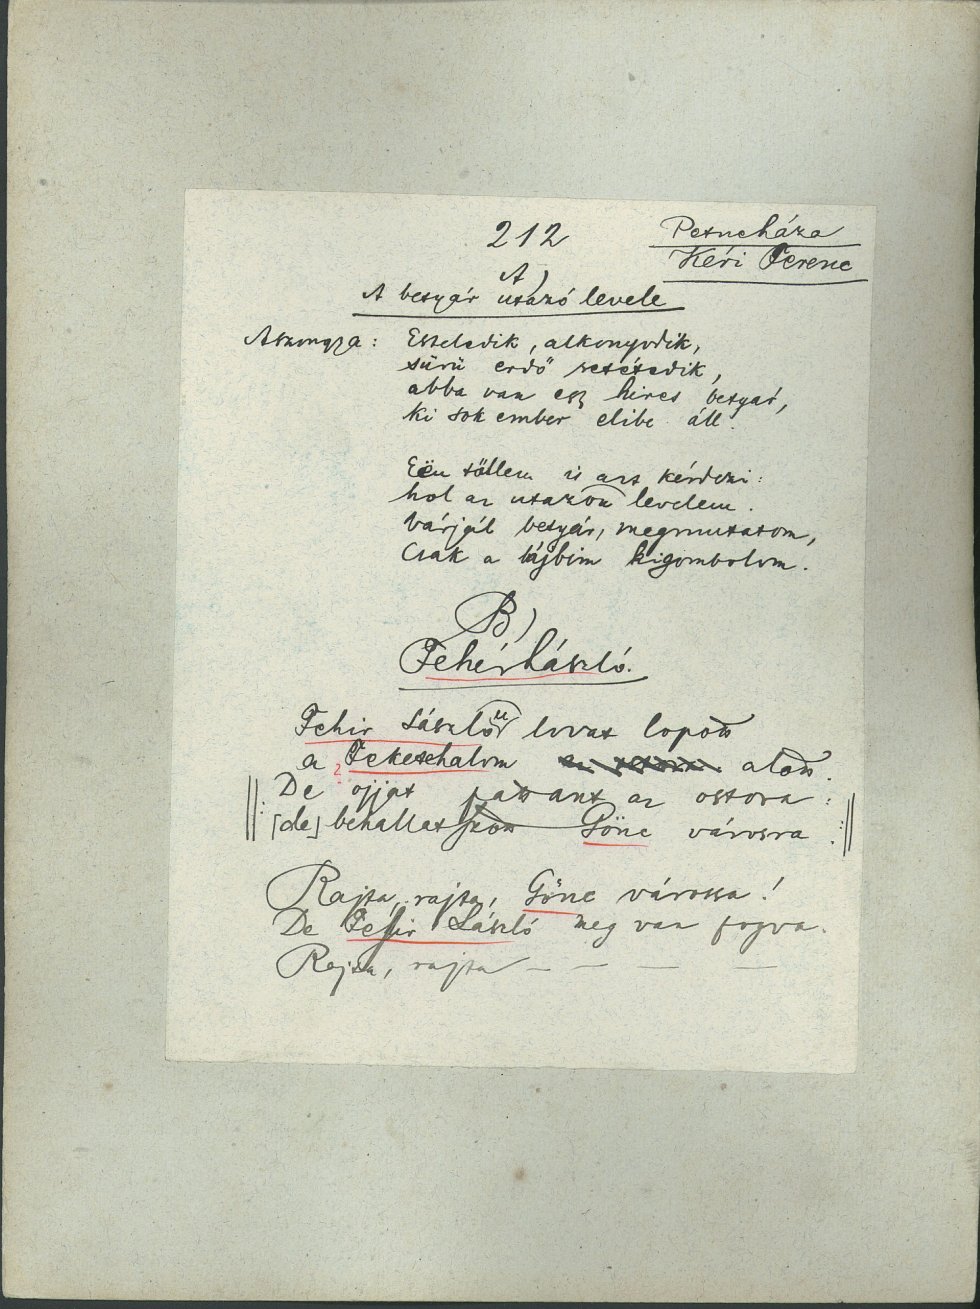 212
Petneháza
Kéri Ferenc
A)
A betyár utazó levele
Aszongya: Esteledik, alkonyodik,
sürü erdő setétedik,
abba van egy hires betyár,
ki sok ember elibe áll.
Eén töllem is azt kérdezi:
hol az utazou levelem.
Várjál betyár, megmutatom,
Csak a lájbim kigombolom.
B)
Fehér László.
Fehir Lászlóu lovat lopott
a Feketehalom alatt.
De ojjat pattant az ostora :
[de] behallatszott Gönc városra :
Rajta, rajta, Gönc várossa!
De Fehir László meg van fogva.
Rajta, rajta — — — —